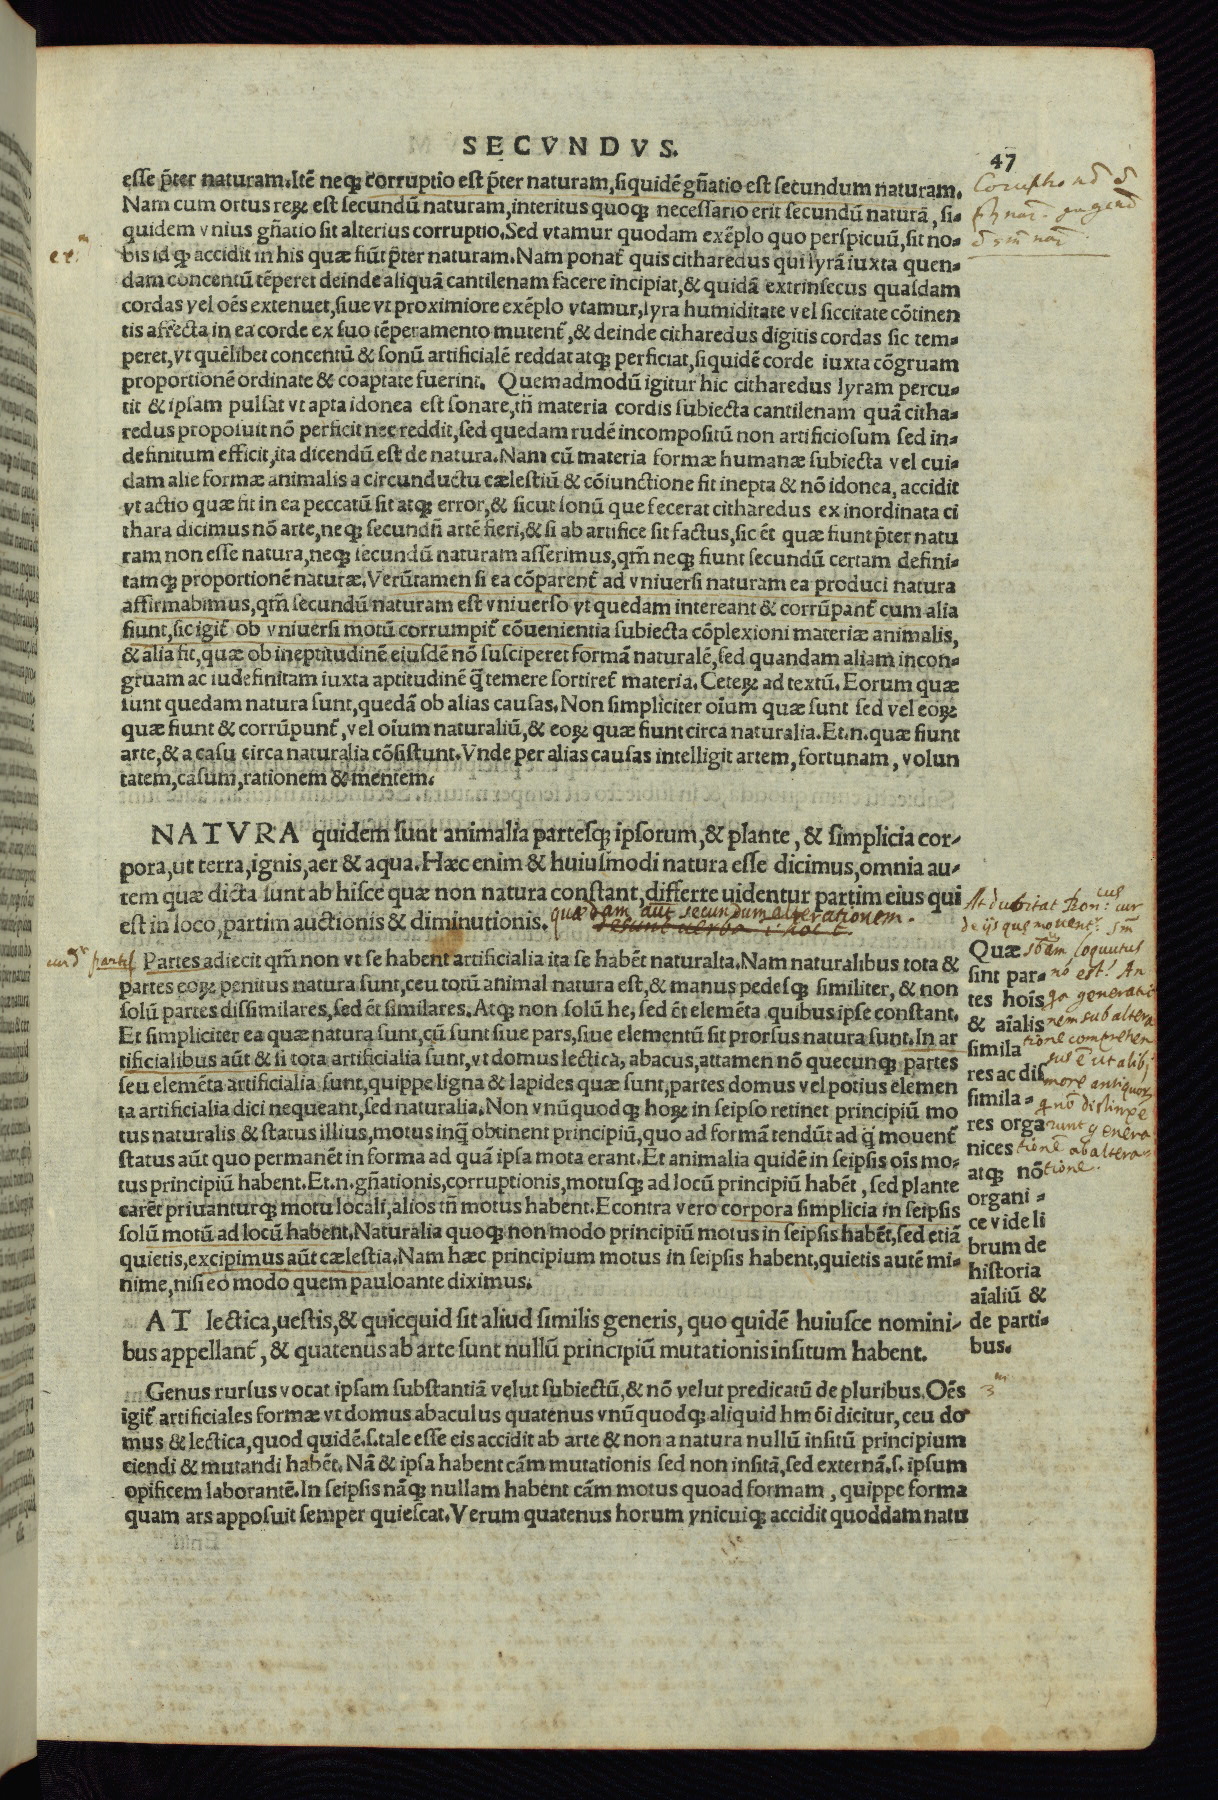 SECVNDVS.
47
esse p̃ter naturam. Itẽ neqꝫ corruptio est p̃ter naturam, siquidẽ gñatio est secundum naturam.
Nam cum ortus reꝝ est secundũ naturam, interitus quoqꝫ necessario erit secundũ naturã, si-
quidem vnius gñatio sit alterius corruptio. Sed vtamur quodam exẽplo quo perspicuũ, sit no-
bis id qꝫ accidit in his quæ fiũt p̃ter naturam. Nam ponat̃ quis citharedus qui lyrã iuxta quen-
dam concentũ tẽperet deinde aliquã cantilenam facere incipiat, & quidã extrinsecus quasdam
cordas vel oẽs extenuet, siue vt proximiore exẽplo vtamur, lyra humiditate vel siccitate cõtinen
tis affecta in ea corde ex suo tẽperamento mutent̃, & deinde citharedus digitis cordas sic tem-
peret, vt quẽlibet concentũ & sonũ artificialẽ reddat atqꝫ perficiat, siquidẽ corde iuxta cõgruam
proportionẽ ordinate & coaptate fuerint. Quemadmodũ igitur hic citharedus lyram percu-
tit & ipsam pulsat vt apta idonea est sonare, tñ materia cordis subiecta cantilenam quã citha-
redus proposuit nõ perficit nec reddit, sed quedam rudẽ incompositũ non artificiosum sed in-
definitum efficit, ita dicendũ est de natura. Nam cũ materia formæ humanæ subiecta vel cui-
dam alie formæ animalis a circunductu cælestiũ & cõiunctione fit inepta & nõ idonea, accidit
vt actio quæ fit in ea peccatũ sit atqꝫ error, & sicut sonũ que fecerat citharedus ex inordinata ci
thara dicimus nõ arte, neqꝫ secundũ artẽ fieri, & si ab artifice sit factus, sic ẽt quæ fiunt p̃ter natu
ram non esse natura, neqꝫ secundũ naturam asserimus, qm̃ neqꝫ fiunt secundũ certam defini-
tamqꝫ proportionẽ naturæ. Verũtamen si ea cõparent̃ ad vniuersi naturam ea produci natura
affirmabimus, qm̃ secundũ naturam est vniuerso vt quedam intereant & corrũpant̃ cum alia
fiunt, sic igit̃ ob vniuersi motũ corrumpit̃ cõuenientia subiecta cõplexioni materiæ animalis,
& alia fit, quæ ob ineptitudinẽ eiusdẽ nõ susciperet formã naturalẽ, sed quandam aliam incon-
gruam ac iudefinitam iuxta aptitudinẽ q̃ temere sortiret̃ materia. Ceteꝝ ad textũ. Eorum quæ
iunt quedam natura sunt, quedã ob alias causas. Non simpliciter oĩum quæ sunt sed vel eoꝝ
quæ fiunt & corrũpunt̃, vel oĩum naturaliũ, & eoꝝ quæ fiunt circa naturalia. Et.n. quæ fiunt
arte, & a casu circa naturalia cõsistunt. Vnde per alias causas intelligit artem, fortunam, volun
tatem, casum, rationem & mentem.
NATVRA quidem sunt animalia partesqꝫ ipsorum, & plante, & simplicia cor-
pora, ut terra, ignis, aer & aqua. Hæc enim & huiusmodi natura esse dicimus, omnia au-
tem quæ dicta sunt ab hisce quæ non natura constant, differre uidentur partim eius qui
est in loco, partim auctionis & diminutionis. quædam aut secundum alterationem.
Partes adiecit qm̃ non vt se habent artificialia ita se habẽt naturalta. Nam naturalibus tota &
partes eoꝝ penitus natura sunt, ceu totũ animal natura est, & manus pedesqꝫ similiter, & non
solũ partes dissimilares, sed ẽt similares. Atqꝫ non solũ he, sed ẽt elemẽta quibus ipse constant.
Et simpliciter ea quæ natura sunt, cũ sunt siue pars, siue elementũ sit prorsus natura sunt. In ar
tificialibus aũt & si tota artificialia sunt, vt domus lectica, abacus, attamen nõ quecunqꝫ partes
seu elemẽta artificialia sunt, quippe ligna & lapides quæ sunt, partes domus vel potius elemen
ta artificialia dici nequeant, sed naturalia. Non vnũquodqꝫ hoꝝ in seipso retinet principiũ mo
tus naturalis & status illius, motus inq̃ obtinent principiũ, quo ad formã tendũt ad q̃ mouent̃
status aũt quo permanẽt in forma ad quã ipsa mota erant. Et animalia quidẽ in seipsis oĩs mo-
tus principiũ habent. Et.n. gñationis, corruptionis, motusqꝫ ad locũ principiũ habẽt, sed plante
carẽt priuanturqꝫ motu locali, alios tñ motus habent. Econtra vero corpora simplicia in seipsis
solũ motũ ad locũ habent. Naturalia quoqꝫ non modo principiũ motus in seipsis habẽt, sed etiã
quietis, excipimus aũt cælestia. Nam hæc principium motus in seipsis habent, quietis autẽ mi-
nime, nisi eo modo quem pauloante diximus.
AT lectica, uestis, & quicquid sit aliud similis generis, quo quidẽ huiusce nomini-
bus appellant̃, & quatenus ab arte sunt nullũ principiũ mutationis insitum habent.
Genus rursus vocat ipsam substantiã velut subiectũ, & nõ velut predicatũ de pluribus. Oẽs
igit̃ artificiales formæ vt domus abaculus quatenus vnũquodqꝫ aliquid hmõi dicitur, ceu do
mus & lectica, quod quidẽ.s. tale esse eis accidit ab arte & non a natura nullũ insitũ principium
ciendi & mutandi habẽt. Nã & ipsa habent cãm mutationis sed non insitã, sed externã.s. ipsum
opificem laborantẽ. In seipsis nãqꝫ nullam habent cãm motus quoad formam, quippe forma
quam ars apposuit semper quiescat. Verum quatenus horum vnicuiqꝫ accidit quoddam natu
Quæ
sint par-
tes hoĩs
& aĩalis
simila
res ac dis
simila-
res orga
nices
atqꝫ nõ
organi-
ce vide li
brum de
historia
aĩaliũ &
de parti-
bus.
At dubitat
de ijs que mouent̃
loquutus
nõ est? An
generatio
nem sub altera
tione comprehen
sus ẽ ut alibj
more antiquoꝝ
q nõ distinxe
runt genera
tionẽ ab altera
tione.